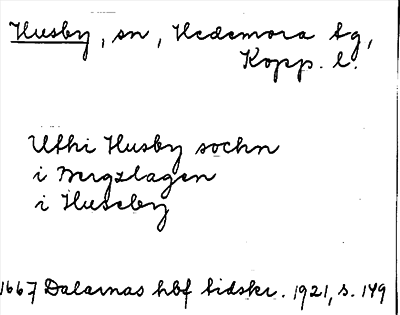 Husby, sn, Hedemora tg,
Kopp. l.
Uthi Husby sochn
i Bergzlagen
i Huseby
1667 Dalarnas hbf tidskr. 1921, s. 149